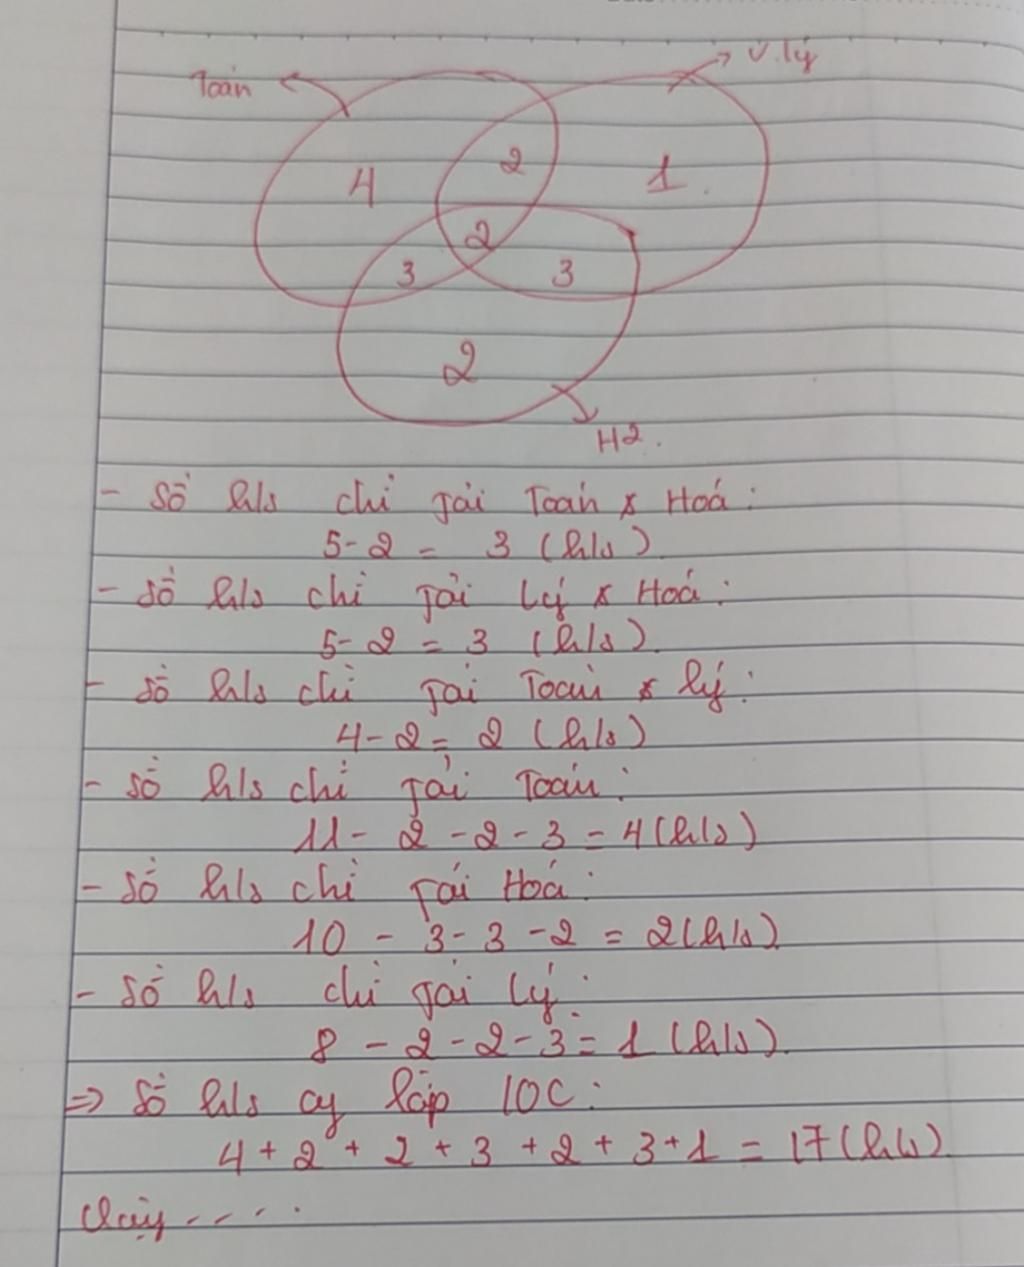 Toán
V.lý
4
2
1
2
3
3
2
H2.
- Số h/s chỉ giỏi Toán & Hoá:
5-2 = 3 (h/s)
- Số h/s chỉ giỏi Lý & Hoá:
5-2 = 3 (h/s).
- Số h/s chỉ giỏi Toán & lý:
4-2 = 2 (h/s)
- Số h/s chỉ giỏi Toán:
11 - 2 - 2 - 3 = 4 (h/s)
- Số h/s chỉ giỏi Hoá:
10 - 3 - 3 - 2 = 2 (h/s)
- Số h/s chỉ giỏi Lý:
8 - 2 - 2 - 3 = 1 (h/s)
=> Số h/s của lớp 10C:
4 + 2 + 2 + 3 + 2 + 3 + 1 = 17 (h/s)
Vậy ....